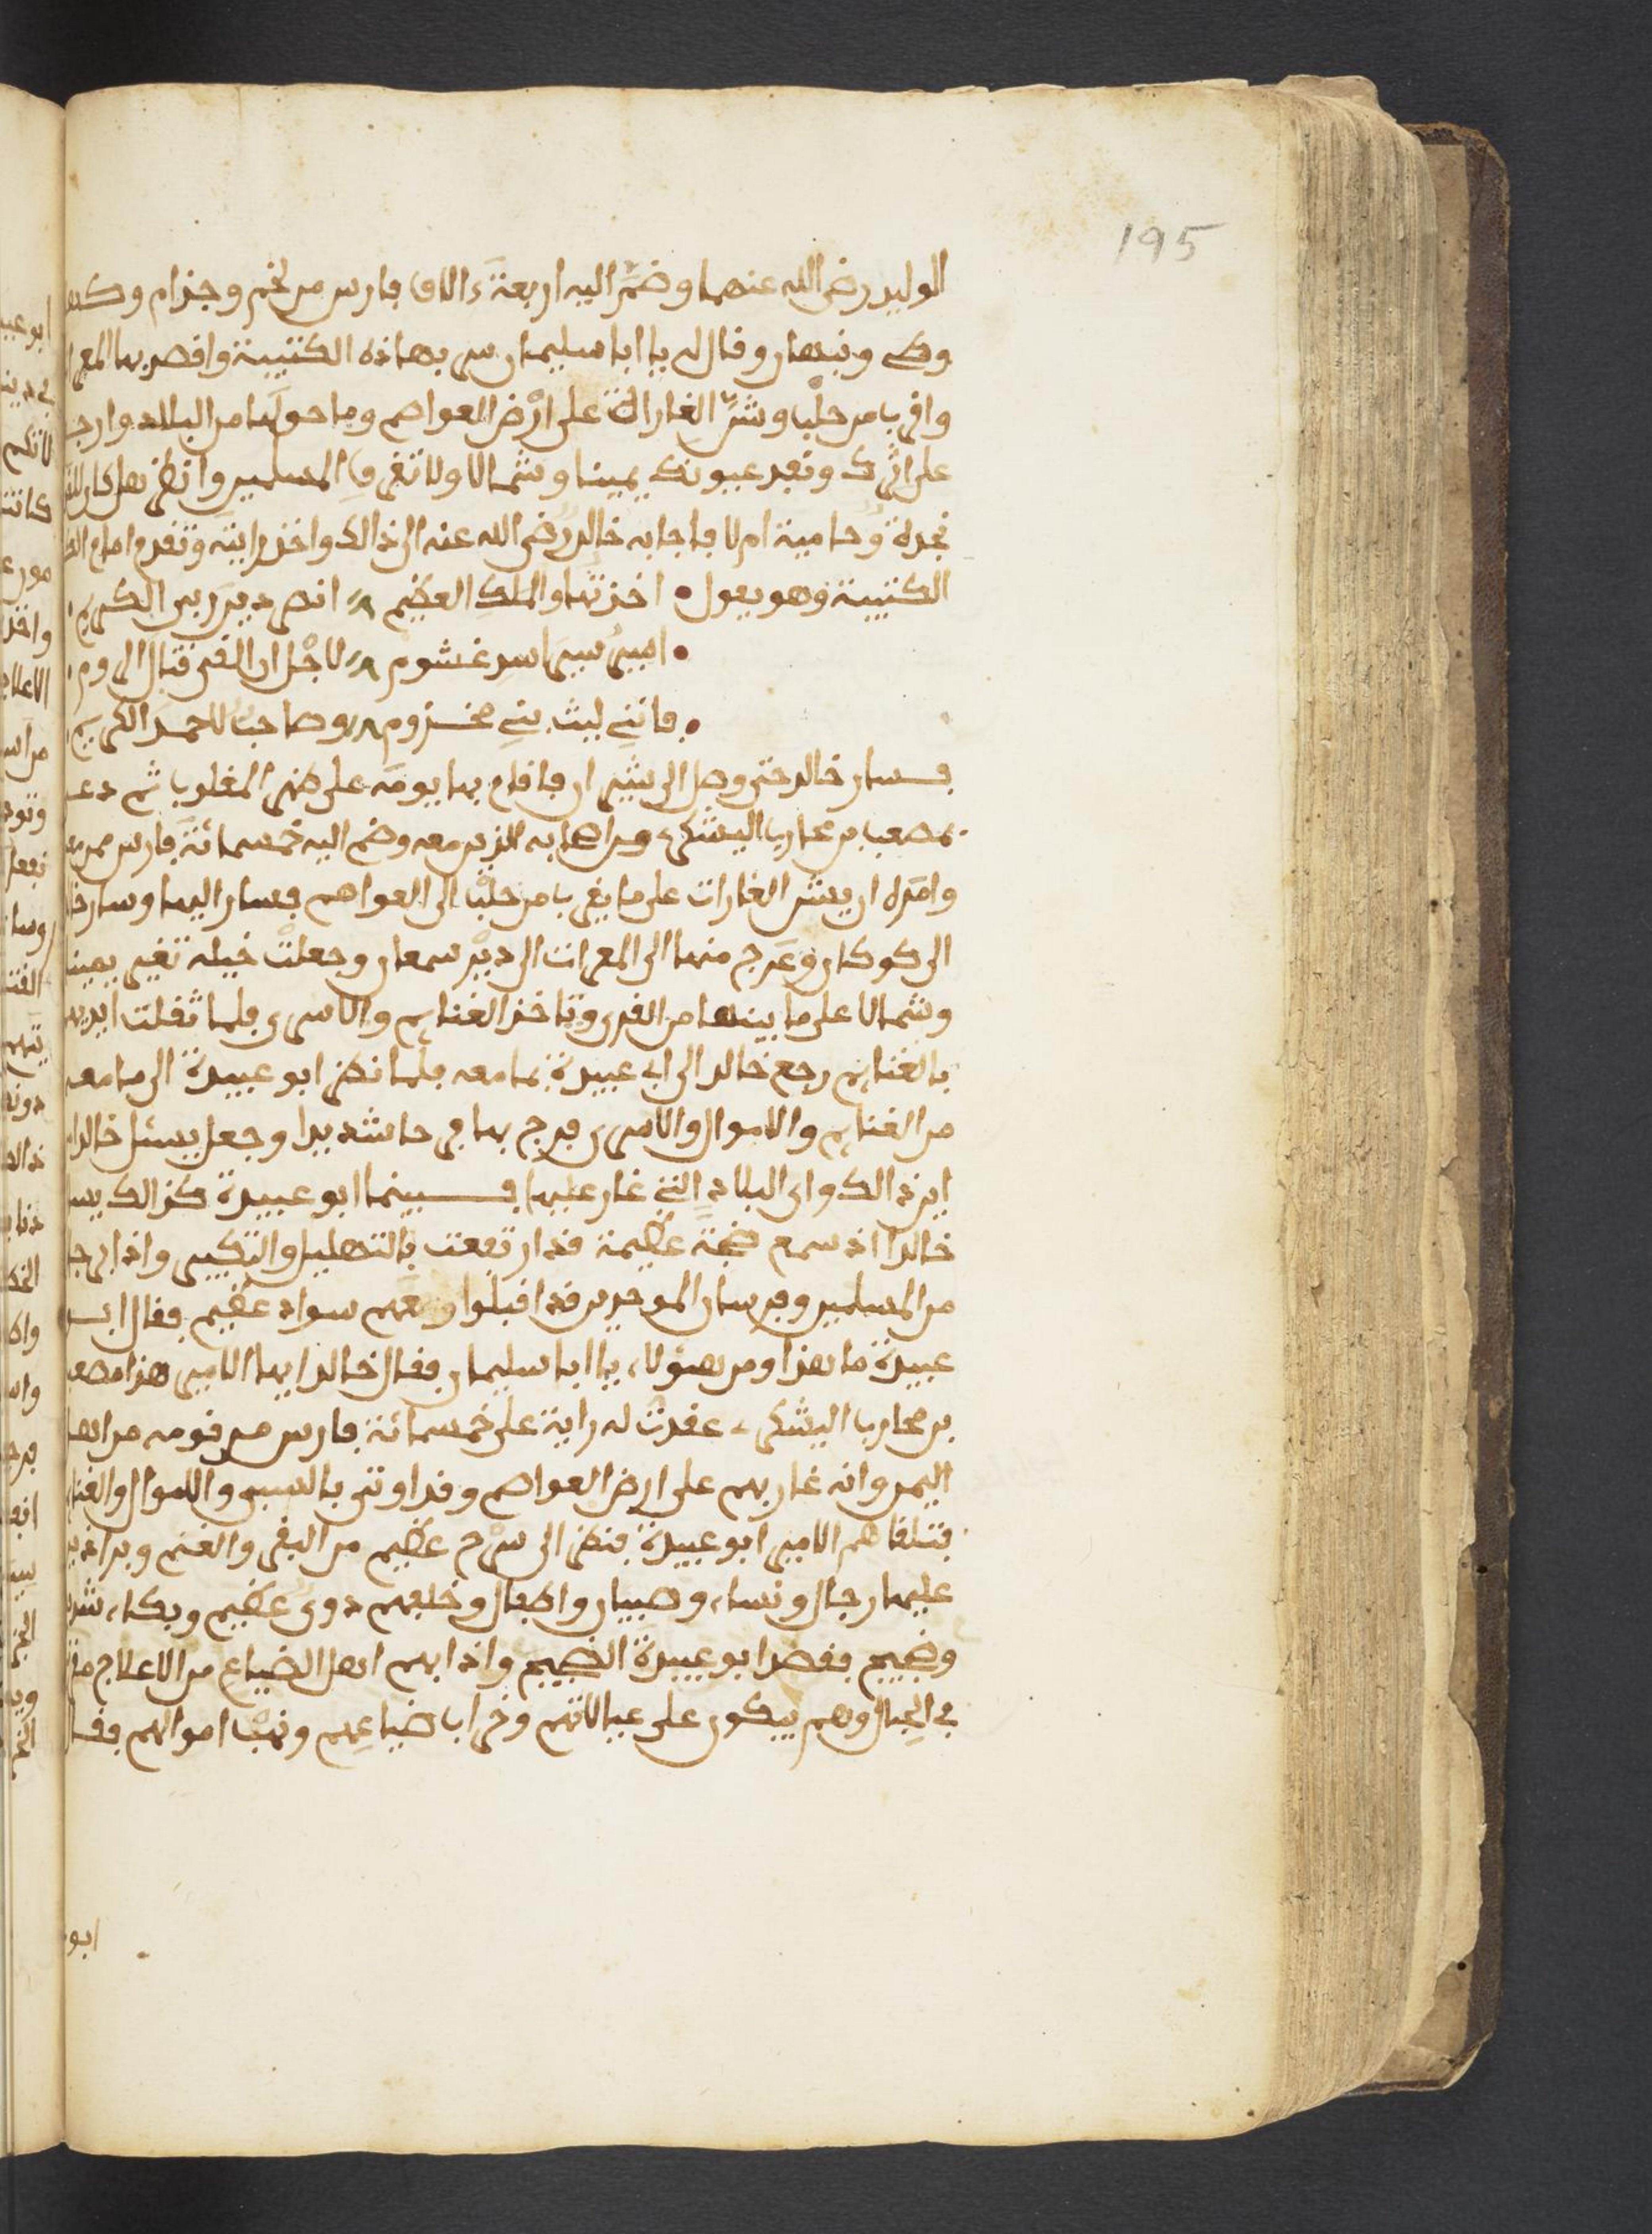 195
الوليد رضى الله عنهما وضمَّ اليه اربعةَ ءالاف فارس من لخم وجذام وكنده
وطى ونبهان وقال له يا ابا سليمان سر بهاذه الكتيبة واقصد بها المعرات
واقرب من حلب وشنّ الغارات على ارْض العواصم وما حولَها من البلاد وارجع
على اثرك ونفد عيونك يمينا وشمالا ولا تغرقِ المسلمين وانظر هل كان للقوم
نجدة وحامية ام لا فاجابه خالد رضى الله عنه الى ذالك واخذ رايته وتقدم امام
الكتيبة وهو يقول • اخذتها والملك العظيم انصر دين ربى الكريم
• اسير سير اسد غشوم لاجْل ان القى قتال الروم
• فاننى ليث بنى مخزوم وصاحب لاحمد الكريم
فسار خالد حتى وصل الى شيزر فاقام بها يومَه على نهر المقلوب ثم دعى
بمصعب بن محارب اليشكرى من اصحابه الذين معه وضم اليه خمسمائة فارس من
وامَره ان يشن الغارات على ما يقرب من حلب الى العواصم فسار اليها وسار خالد
الى كوكان وعَرج منها الى المعرات الى ديْر سمعان وجعلتْ خيله تغير يمينا
وشمالا على ما بينها من القرى وتاخذ الغنايم والاسرى فلما ثقلت ايديهم
بالغنايم رجع خالد الى ابى عبيدة بما معه فلما نظر ابو عبيدة الى ما معه
من الغنايم والاموال والاسرى فرح بها فرحا شديدا وجعل يسئل خالدا
اين ذالك واى البلاد التى غار عليها فبينما ابو عبيدة كذالك يسئل
خالدا اذ سمع ضجة عظيمة قد ارتفعت بالتهليل والتكبير واذا برجال
من المسلمين وفرسان الموحدين قد اقبلوا ومعهم سواد عظيم فقال ابو
عبيدة ما هذا ومن هؤلاء يا ابا سليمان فقال خالد ايها الامير هذا مصعب
بن محارب اليشكرى عقدتُ له راية على خمسمائة فارس من قومه من اهل
اليمن وانه غار بهم على ارض العواصم وقد اوتى بالسبى والاموال والغنايم
فتلقاهم الامير ابو عبيدة فنظر الى سرْح عظيم من البقر والغنم وبراذين
عليها رجال ونساء وصبيان واطفال وخلفهم دوى عظيم وبكاء شديد
وضجيج فقصد ابو عبيدة الضجيج واذا بهم اهل الضياع من الاعلاج
فى الحبال وهم يبكون على عيالاتهم وخراب ضياعِهم ونهب اموالهم فقال
ابو